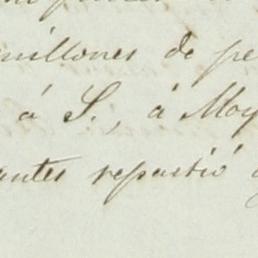 millones de pe
á S., á Moy
antes repartió